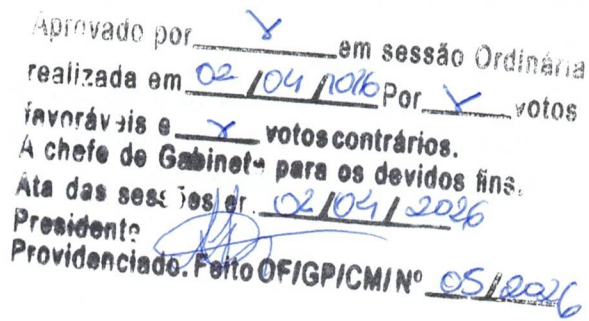 Aprovado por x em sessão Ordinária
realizada em 02/04/2026 Por x votos
favoráveis e x votos contrários.
A chefe de Gabinete para os devidos fins.
Ata das sessões er. 02/04/2026
Presidente
Providenciado. Feito OF/GP/CMI Nº 05/2026